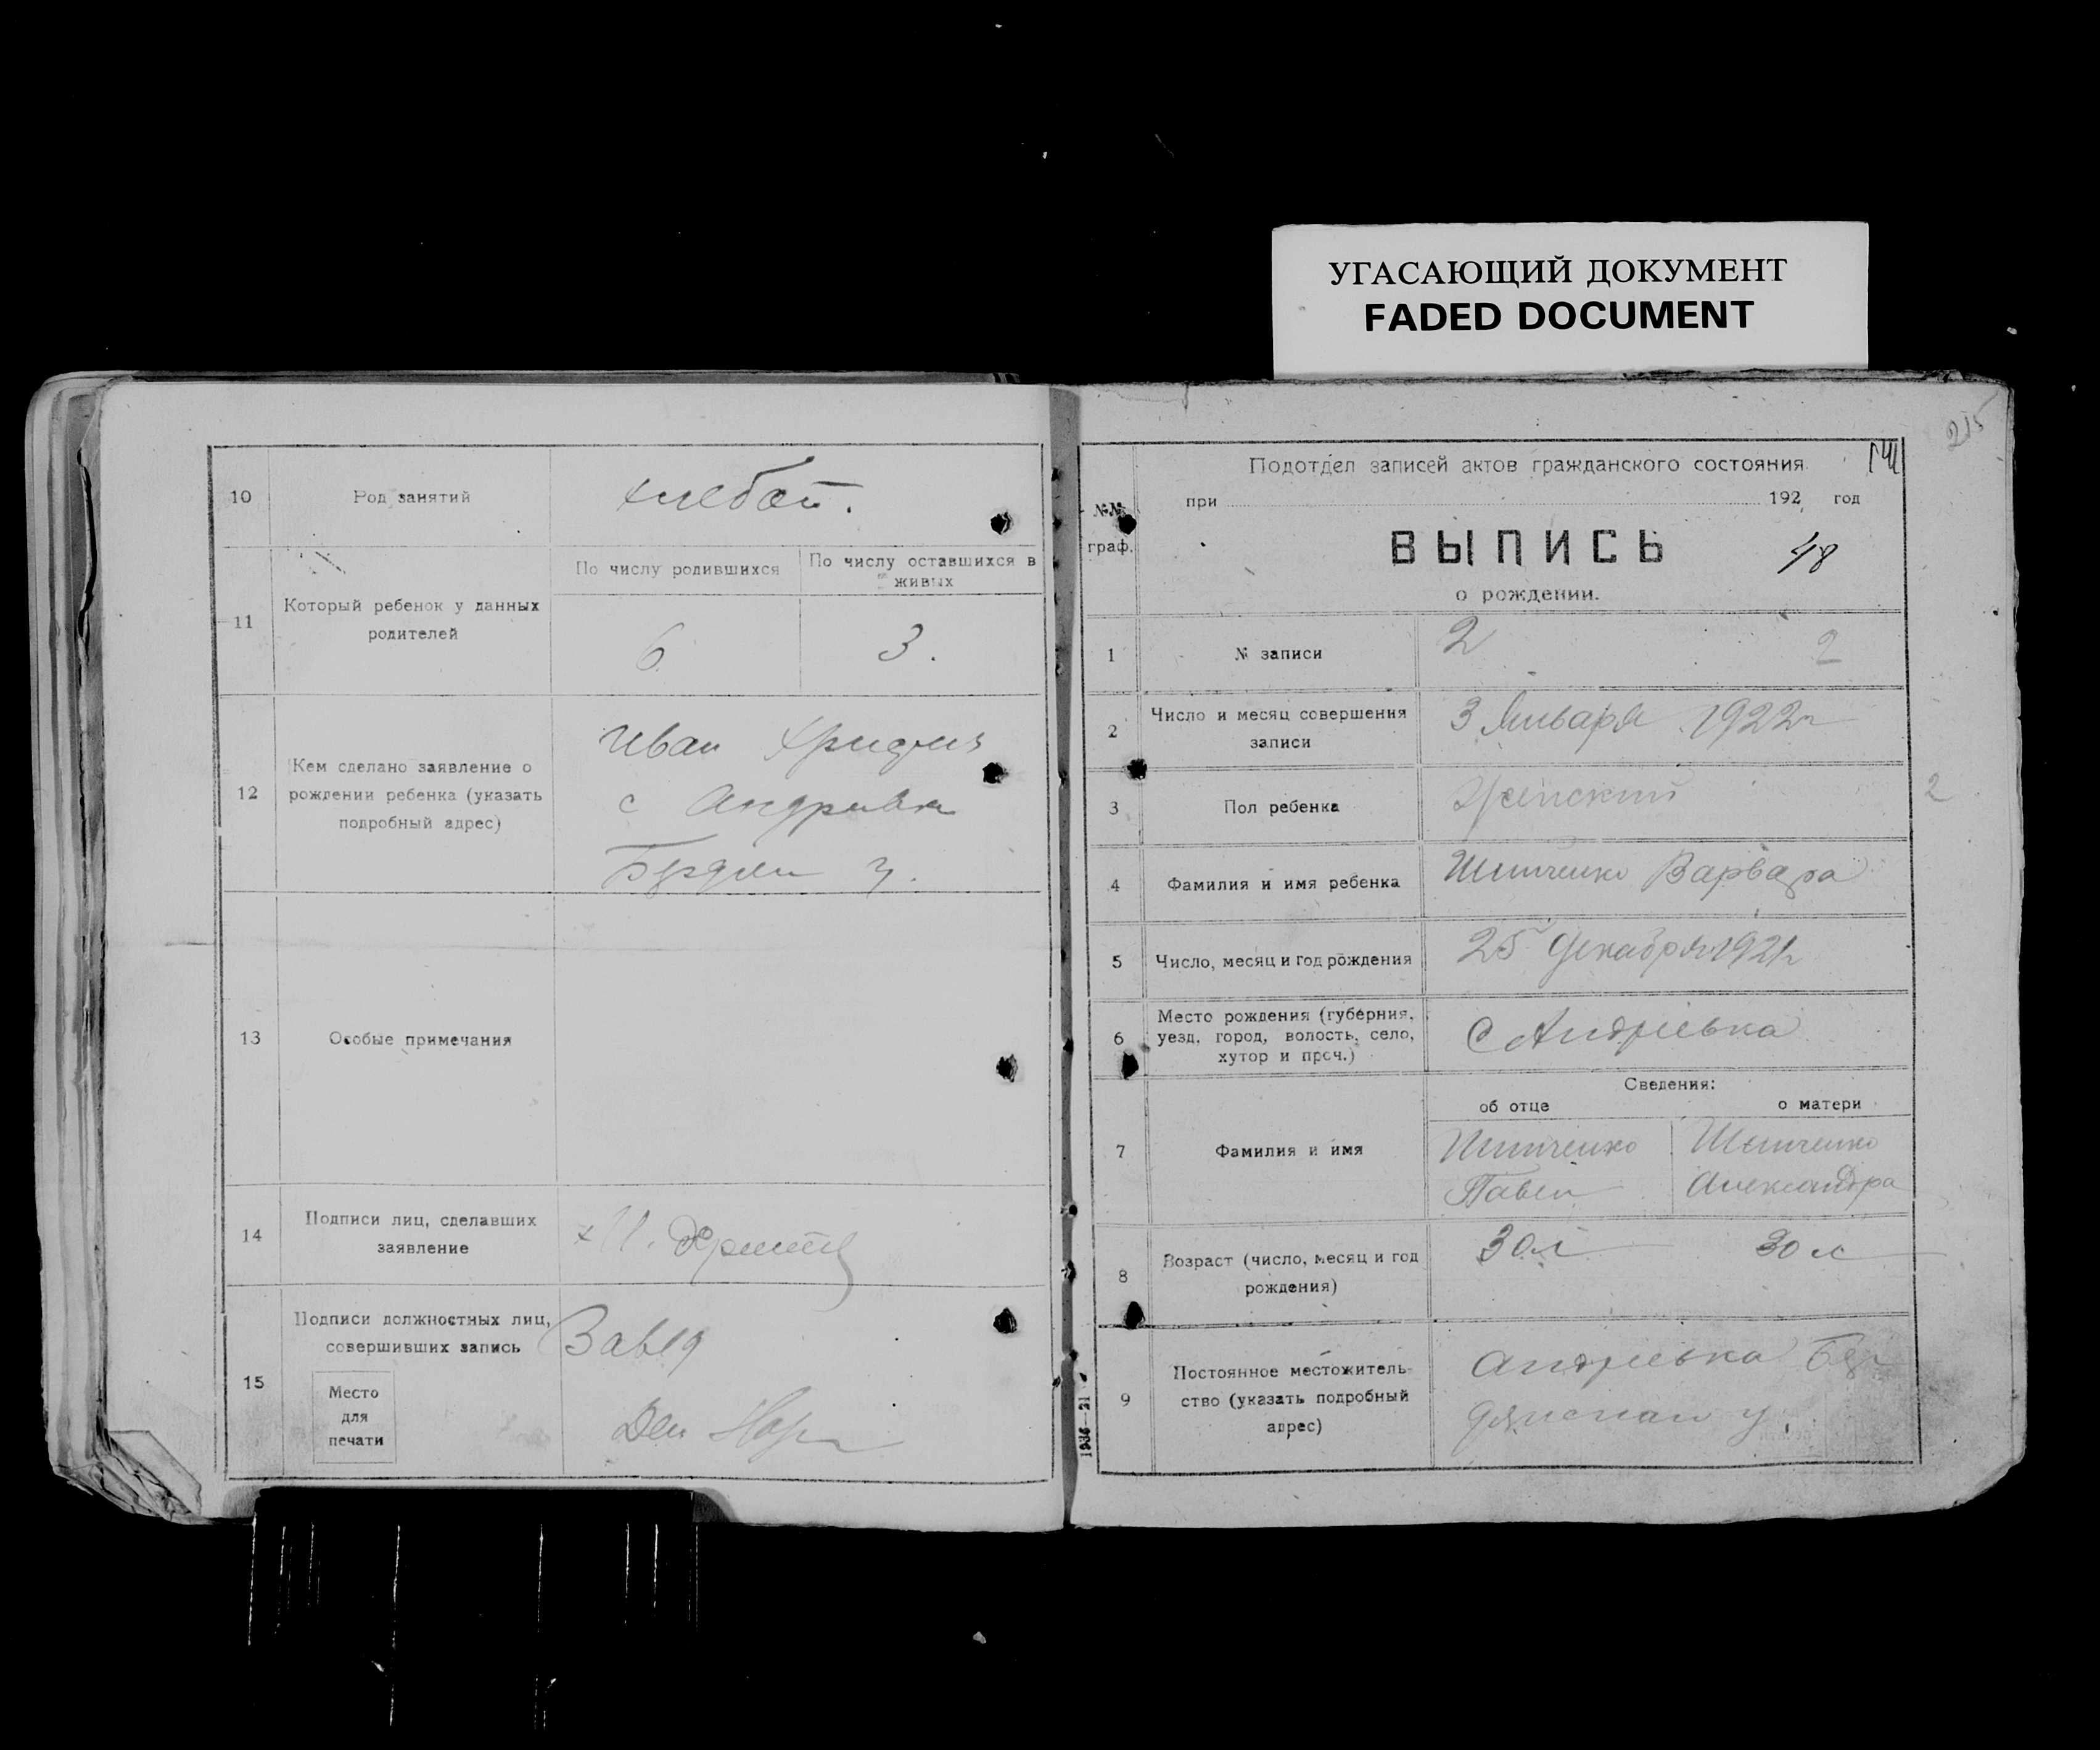 УГАСАЮЩИЙ ДОКУМЕНТ
FADED DOCUMENT
10
Род занятий
хлебоп.
11
Который ребенок у данных
родителей
По числу родившихся
По числу оставшихся в
живых
6
3.
12
Кем сделано заявление о
рождении ребенка (указать
подробный адрес)
Иван
с
13
Особые примечания
14
Подписи лиц, сделавших
заявление
15
Подписи должностных лиц,
совершивших запись
Место
для
печати
Завед
215
Подотдел записей актов гражданского состояния
при 192 год
№№
граф.
ВЫПИСЬ
48
о рождении.
1
№ записи
2
2
2
Число и месяц совершения
записи
3 Января 1922 г
3
Пол ребенка
Женский
2
4
Фамилия и имя ребенка
Варвара
5
Число, месяц и год рождения
25 декабря 1921 г
6
Место рождения (губерния,
уезд, город, волость, село,
хутор и проч.)
С Андриевка
Сведения:
об отце
о матери
7
Фамилия и имя
Павел
Александра
8
Возраст (число, месяц и год
рождения)
30 л
30 л
9
Постоянное местожитель-
ство (указать подробный
адрес)
Андриевка Бер
у.
1934—21